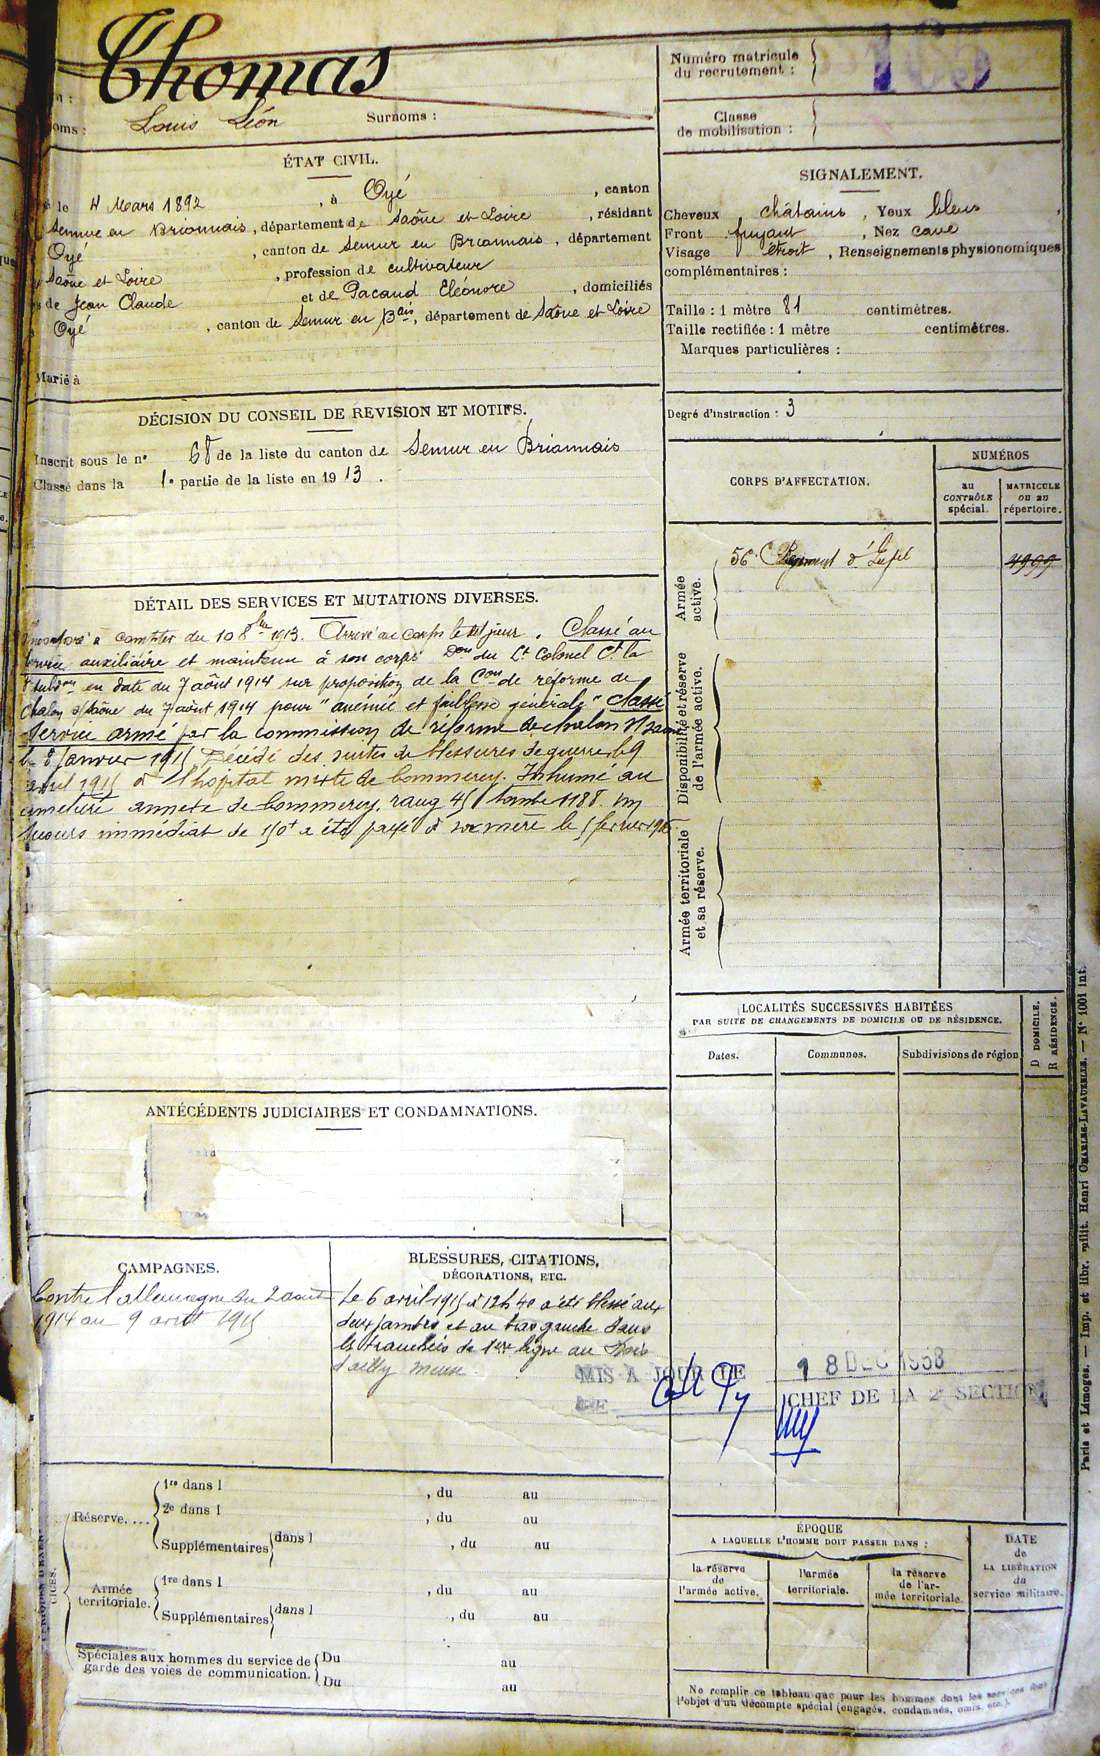 Thomas
Numéro matricule
du recrutement :
oms : Louis Léon Surnoms :
Classe
de mobilisation :
ÉTAT CIVIL.
le 4 Mars 1892, à Oyé, canton
Semur en Brionnais, département de Saône et Loire, résidant
Oyé, canton de Semur en Brionnais, département
Saône et Loire, profession de cultivateur
de Jean Claude et de Pacaud Eléonore, domiciliés
Oyé, canton de Semur en Bais, département de Saône et Loire
Marié à
SIGNALEMENT.
Cheveux châtains, Yeux bleus
Front fuyant, Nez cave
Visage étroit, Renseignements physionomiques
complémentaires :
Taille : 1 mètre 81 centimètres.
Taille rectifiée : 1 mètre centimètres.
Marques particulières :
Degré d'instruction : 3
DÉCISION DU CONSEIL DE REVISION ET MOTIFS.
Inscrit sous le n° 68 de la liste du canton de Semur en Brionnais
Classé dans la 1e partie de la liste en 1913.
CORPS D'AFFECTATION.
NUMÉROS
au
CONTRÔLE
spécial.
MATRICULE
OU AU
répertoire.
Armée
active.
56e Régiment d'Infie
4999
Disponibilité et réserve
de l'armée active.
Armée territoriale
et sa réserve.
DÉTAIL DES SERVICES ET MUTATIONS DIVERSES.
à compter du 10 8bre 1913. Arrivé au Corps le dit jour. Classé au
service auxiliaire et maintenu à son corps Don du Lt Colonel Ct la
subdon en date du 7 août 1914 sur proposition de la Con de réforme de
Chalon s/Saône du 7 août 1914 pour "anémie et faiblesse générale" classé
service armé par la commission de réforme de chalon s/Saône
le 8 Janvier 1915 Décédé des suites de blessures de guerre le 9
avril 1915 à l'hôpital mixte de Commercy. Inhumé au
cimetière annexe de Commercy, rang 45 tombe 1188. Un
secours immédiat de 150f a été payé à sa mère le 5 février
ANTÉCÉDENTS JUDICIAIRES ET CONDAMNATIONS.
LOCALITÉS SUCCESSIVES HABITÉES
PAR SUITE DE CHANGEMENTS DE DOMICILE OU DE RÉSIDENCE.
D DOMICILE.
R RÉSIDENCE.
Dates.
Communes.
Subdivisions de région
CAMPAGNES.
Contre l'allemagne du 2 août
1914 au 9 avril 1915
BLESSURES, CITATIONS,
DÉCORATIONS, ETC.
Le 6 avril 1915 à 12h40 a été blessé aux
deux jambes et au bras gauche dans
les tranchées de 1ère ligne au Bois
d'ailly meuse.
MIS A JOUR LE 18 DEC 1958
LE CHEF DE LA 2e SECTION
Réserve....
1re dans l , du au
2e dans l , du au
Supplémentaires dans l , du au
Armée
territoriale.
1re dans l , du au
Supplémentaires dans l , du au
Spéciales aux hommes du service de
garde des voies de communication.
Du au
Du au
ÉPOQUE
A LAQUELLE L'HOMME DOIT PASSER DANS :
la réserve
de
l'armée active.
l'armée
territoriale.
la réserve
de l'ar-
mée territoriale.
DATE
de
LA LIBÉRATION
du
service militaire.
Ne remplir ce tableau que pour les hommes dont les services font
l'objet d'un décompte spécial (engagés, condamnés, omis, etc.).
Paris et Limoges. — Imp. et libr. milit. Henri CHARLES-LAVAUZELLE. — N° 1001 int.